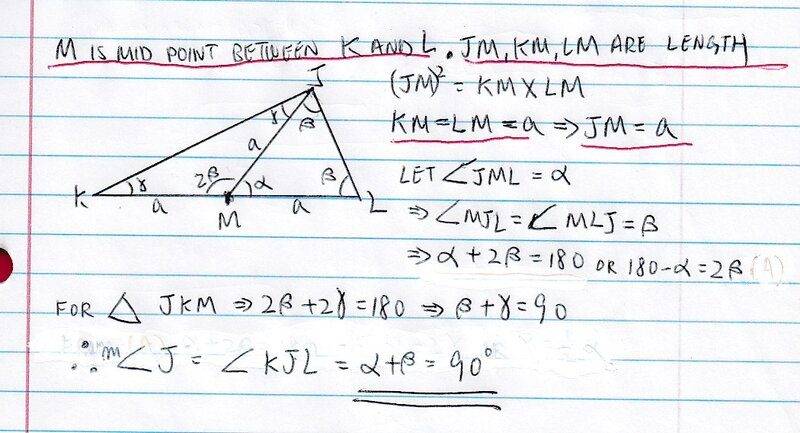 M IS MID POINT BETWEEN K AND L. JM, KM, LM ARE LENGTH
(JM)² = KM X LM
KM = LM = a ⇒ JM = a
LET ∠JML = α
⇒ ∠MJL = ∠MLJ = β
⇒ α + 2β = 180 OR 180 - α = 2β (A)
J
γ β
a
K γ 2β α β L
a M a
FOR △ JKM ⇒ 2β + 2γ = 180 ⇒ β + γ = 90
∴ m∠J = ∠KJL = α + β = 90°